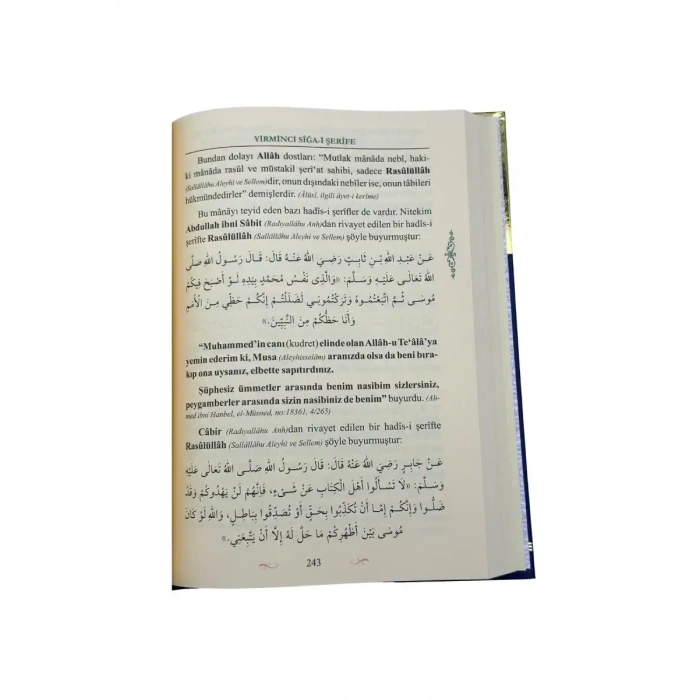 YİRMİNCİ SÎĞA-İ ŞERÎFE
Bundan dolayı Allâh dostları: "Mutlak mânâda nebî, haki-
ki mânâda rasûl ve müstakil şerî'at sahibi, sadece Rasûlüllâh
(Sallâllâhu Aleyhi ve Sellem)dir, onun dışındaki nebîler ise, onun tâbileri
hükmündedirler" demişlerdir. (Âlûsî, ilgili âyet-i kerîme)
Bu mânâyı teyid eden bazı hadîs-i şerîfler de vardır. Nitekim
Abdullah ibni Sâbit (Radıyallâhu Anh)dan rivayet edilen bir hadîs-i
şerîfte Rasûlüllâh (Sallâllâhu Aleyhi ve Sellem) şöyle buyurmuştur:
عَنْ عَبْدِ اللهِ بْنِ ثَابِتٍ رَضِيَ اللهُ عَنْهُ قَالَ: قَالَ رَسُولُ اللهِ صَلَّى
اللهُ تَعَالَى عَلَيْهِ وَسَلَّمَ: «وَالَّذِى نَفْسُ مُحَمَّدٍ بِيَدِهِ لَوْ أَصْبَحَ فِيكُمْ
مُوسَى ثُمَّ اتَّبَعْتُمُوهُ وَتَرَكْتُمُونِي لَضَلَلْتُمْ إِنَّكُمْ حَظِّي مِنَ الْأُمَمِ
وَأَنَا حَظُّكُمْ مِنَ النَّبِيِّينَ.»
"Muhammed'in canı (kudret) elinde olan Allâh-u Te'âlâ'ya
yemin ederim ki, Musa (Aleyhisselâm) aranızda olsa da beni bıra-
kıp ona uysanız, elbette sapıtırdınız.
Şüphesiz ümmetler arasında benim nasibim sizlersiniz,
peygamberler arasında sizin nasibiniz de benim" buyurdu. (Ah-
med ibni Hanbel, el-Müsned, no:18361, 4/265)
Câbir (Radıyallâhu Anh)dan rivayet edilen bir hadîs-i şerîfte
Rasûlüllâh (Sallâllâhu Aleyhi ve Sellem) şöyle buyurmuştur:
عَنْ جَابِرٍ رَضِيَ اللهُ عَنْهُ قَالَ: قَالَ رَسُولُ اللهِ صَلَّى اللهُ تَعَالَى عَلَيْهِ
وَسَلَّمَ: «لَا تَسْأَلُوا أَهْلَ الْكِتَابِ عَنْ شَىْءٍ، فَإِنَّهُمْ لَنْ يَهْدُوكُمْ وَقَدْ
ضَلُّوا وَإِنَّكُمْ إِمَّا أَنْ تُكَذِّبُوا بِحَقٍّ أَوْ تُصَدِّقُوا بِبَاطِلٍ، وَاللهِ لَوْ كَانَ
مُوسَى بَيْنَ أَظْهُرِكُمْ مَا حَلَّ لَهُ إِلَّا أَنْ يَتَّبِعَنِي.»
243